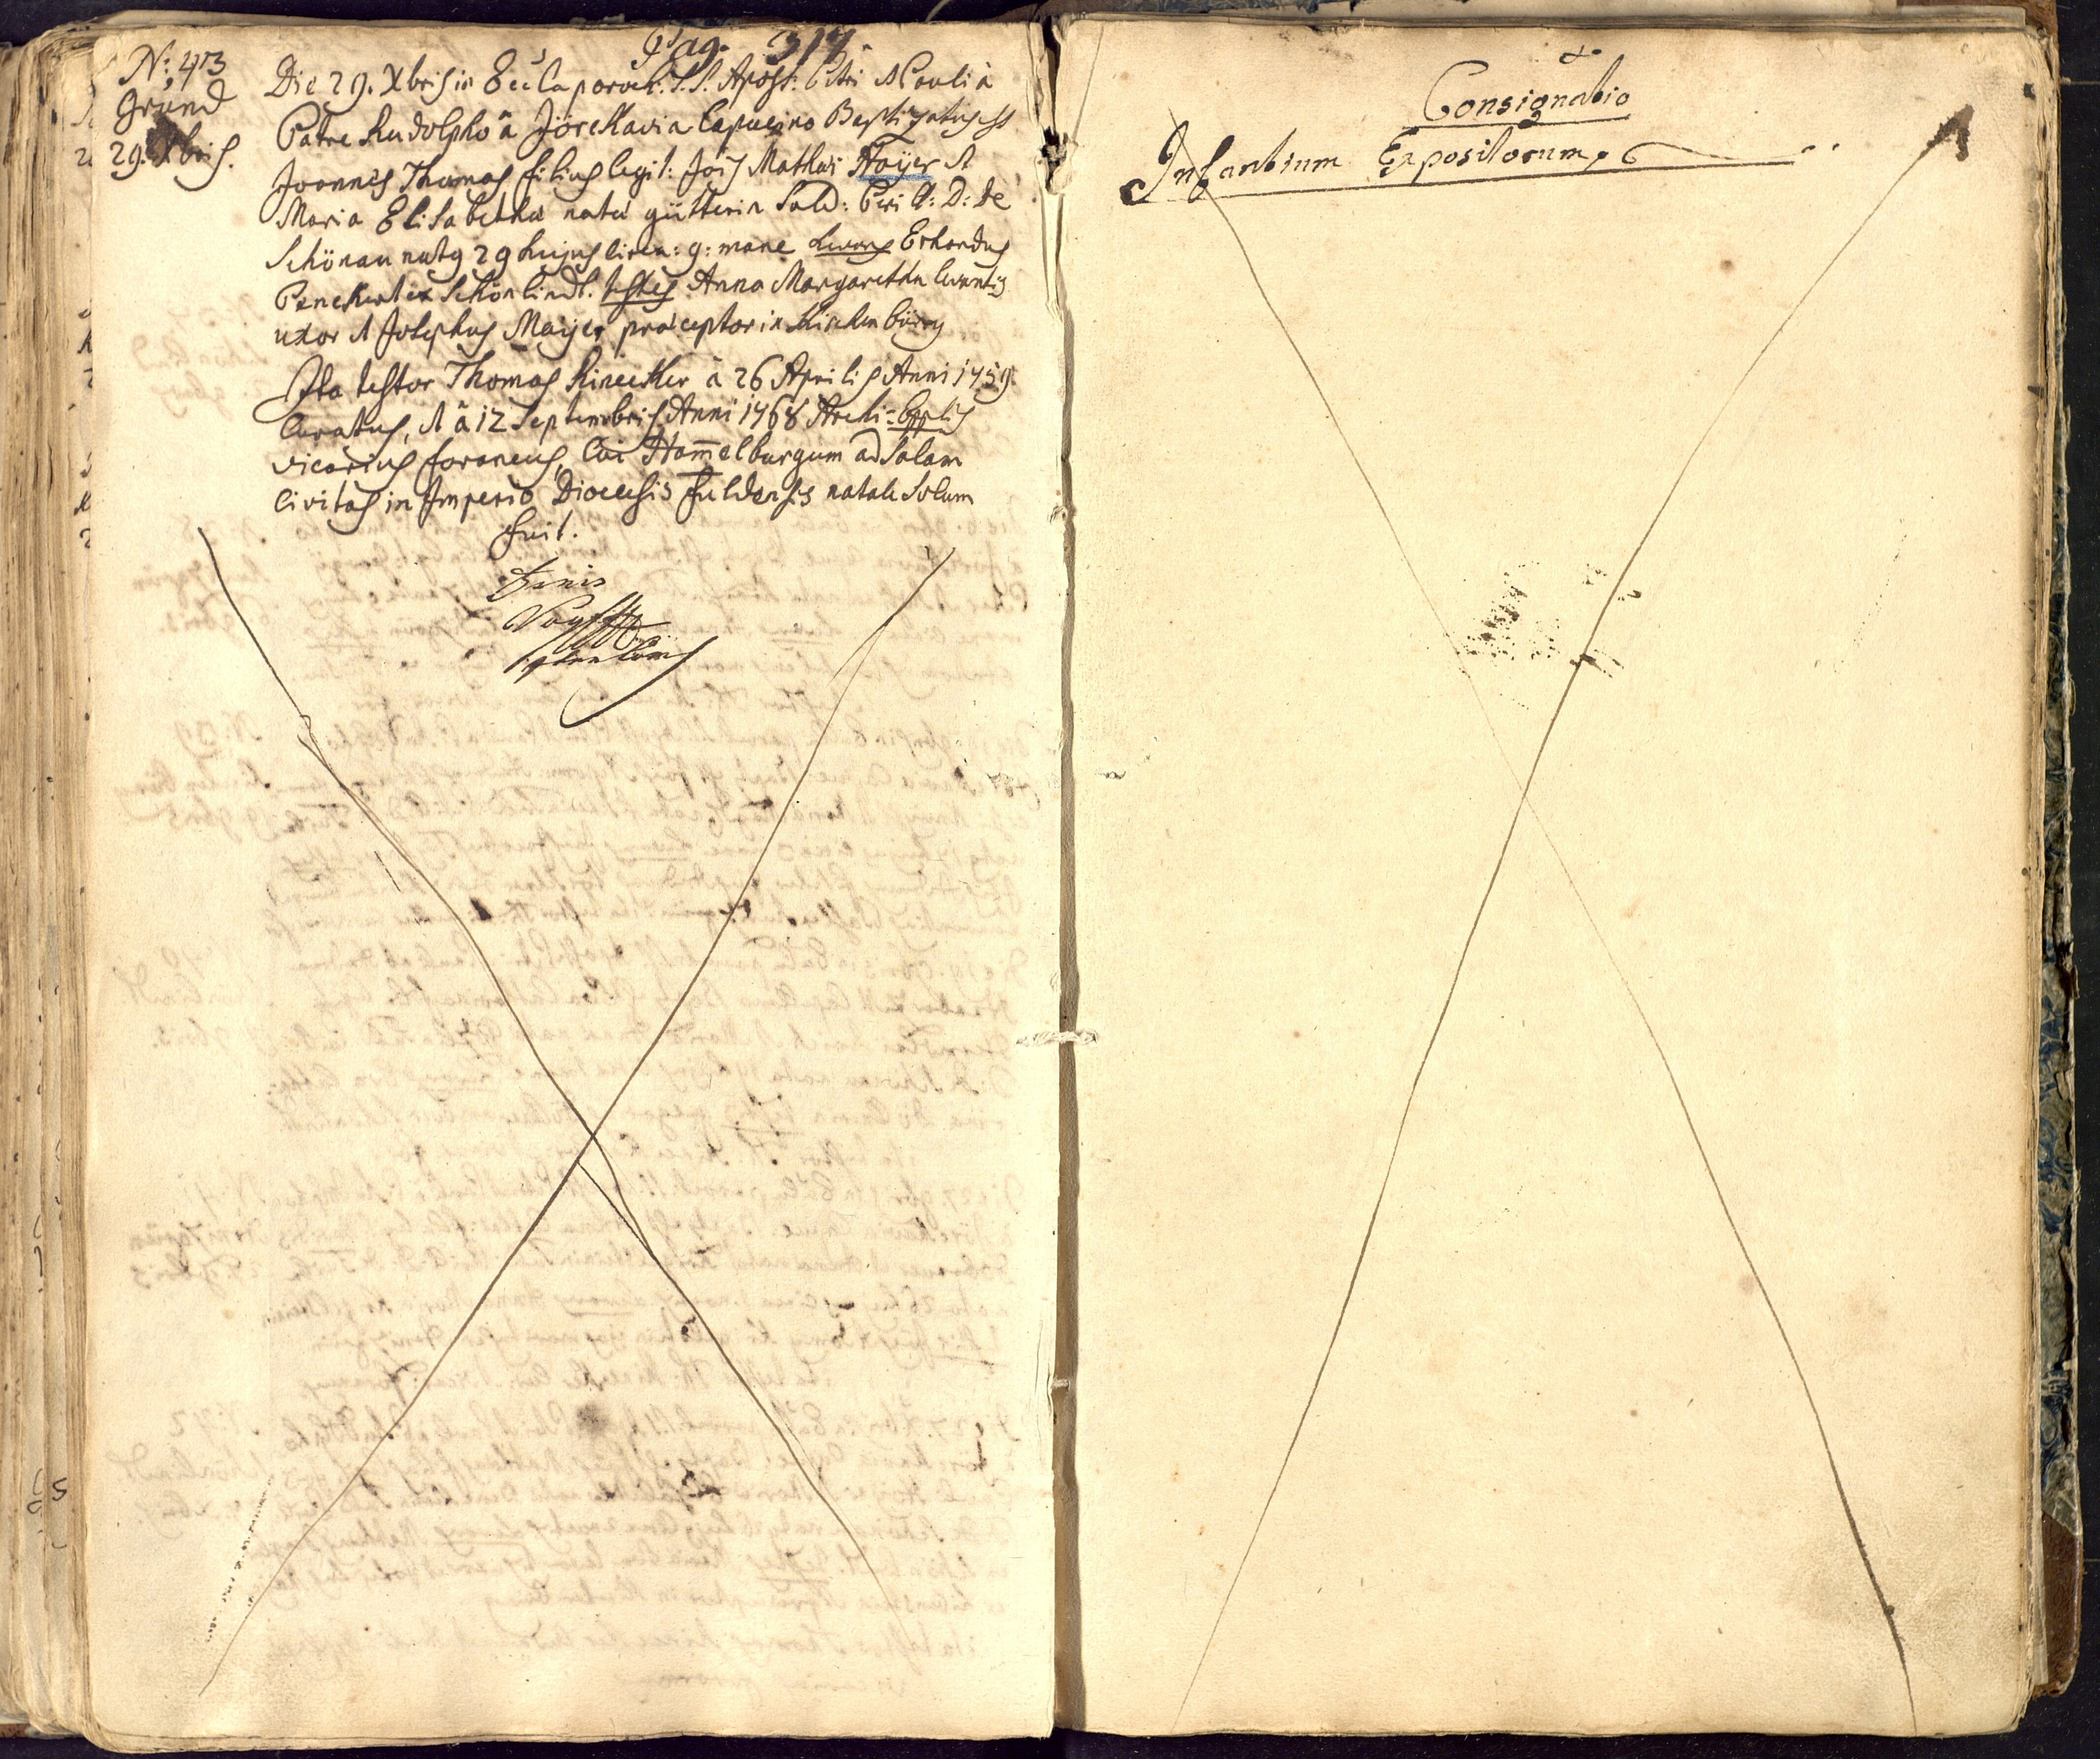 Pag. 317
N: 43
Gründ
29. Xbris.
Die 29. Xbris in Eccla paroch: S.S. Apost: Petri & Pauli à
Patre Rudolpho à Jörckavia Capucino Baptizatus est
Joannes Thomas filius legit: Jois Mathaei Hoÿer &
Maria Elisabetha nata gütterin Subd: Cels: A: D: de
Schönau natus 29 hujus circa: 9: mane Levans Erhardus
ex Schönlindt. testes Anna Margaretha levantis
uxor & Josephus Maÿer praeceptor in Kirchenbürg
Ita testor Thomas Rinecker à 26 Aprilis Anni 1759.
Curatus, & à 12 Septembris Anni 1768 Archi-Eppalis
vicarius foraneus, Cui Ham̄elburgum ad Salam
Civitas in Imperio Dioecesis fuldensis natale Solum
fuit.
Finis
Consignatio
Infantium Expositorum.